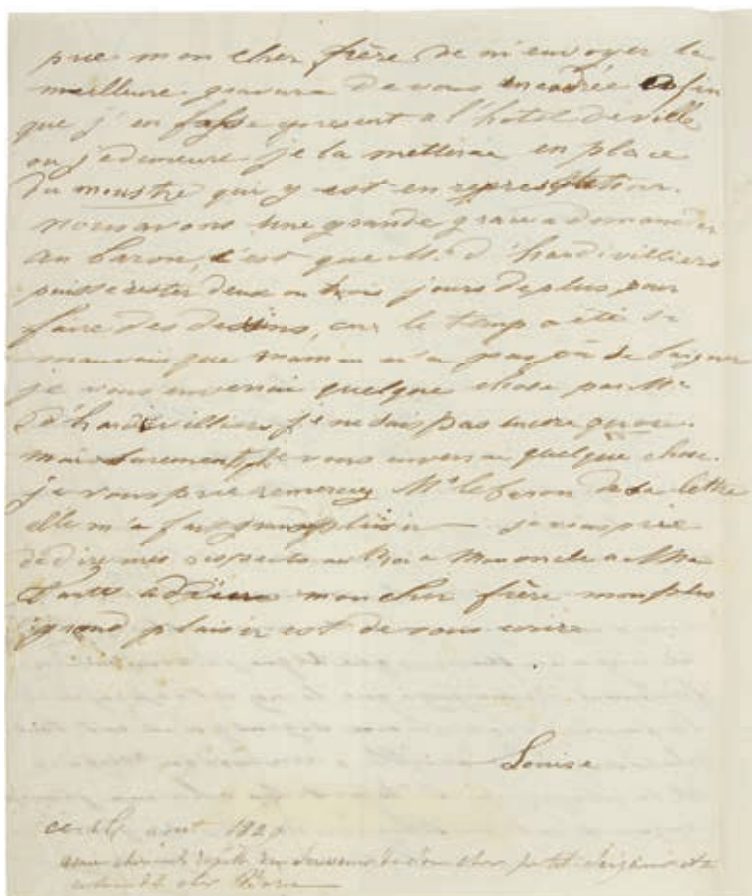 prie mon cher frère de m'envoyer la
meilleure gravure de vous encadrée afin
que j'en fasse present a l'hotel de ville
ou je demeure je la metterai en place
du monstre qui y est en
nous avons une grande grace a demander
au baron, c'est que Mr d'hardivilliers
puisse rester deux ou trois jours de plus pour
faire des dessins, car le temp a été si
mauvais que maman n'a pas pû se baigner
je vous enverai quelque chose par Mr
d'hardivilliers, je ne sais pas encore quoi
mais surement je vous enverai quelque chose.
je vous prie remercier Mr le baron de sa lettre
elle m'a fait grand plaisir je vous prie
de dire mes respects au Roi a Mon oncle a Ma
tante adieu mon cher frère mon plus
grand plaisir est de vous ecrire
Louise
ce aout